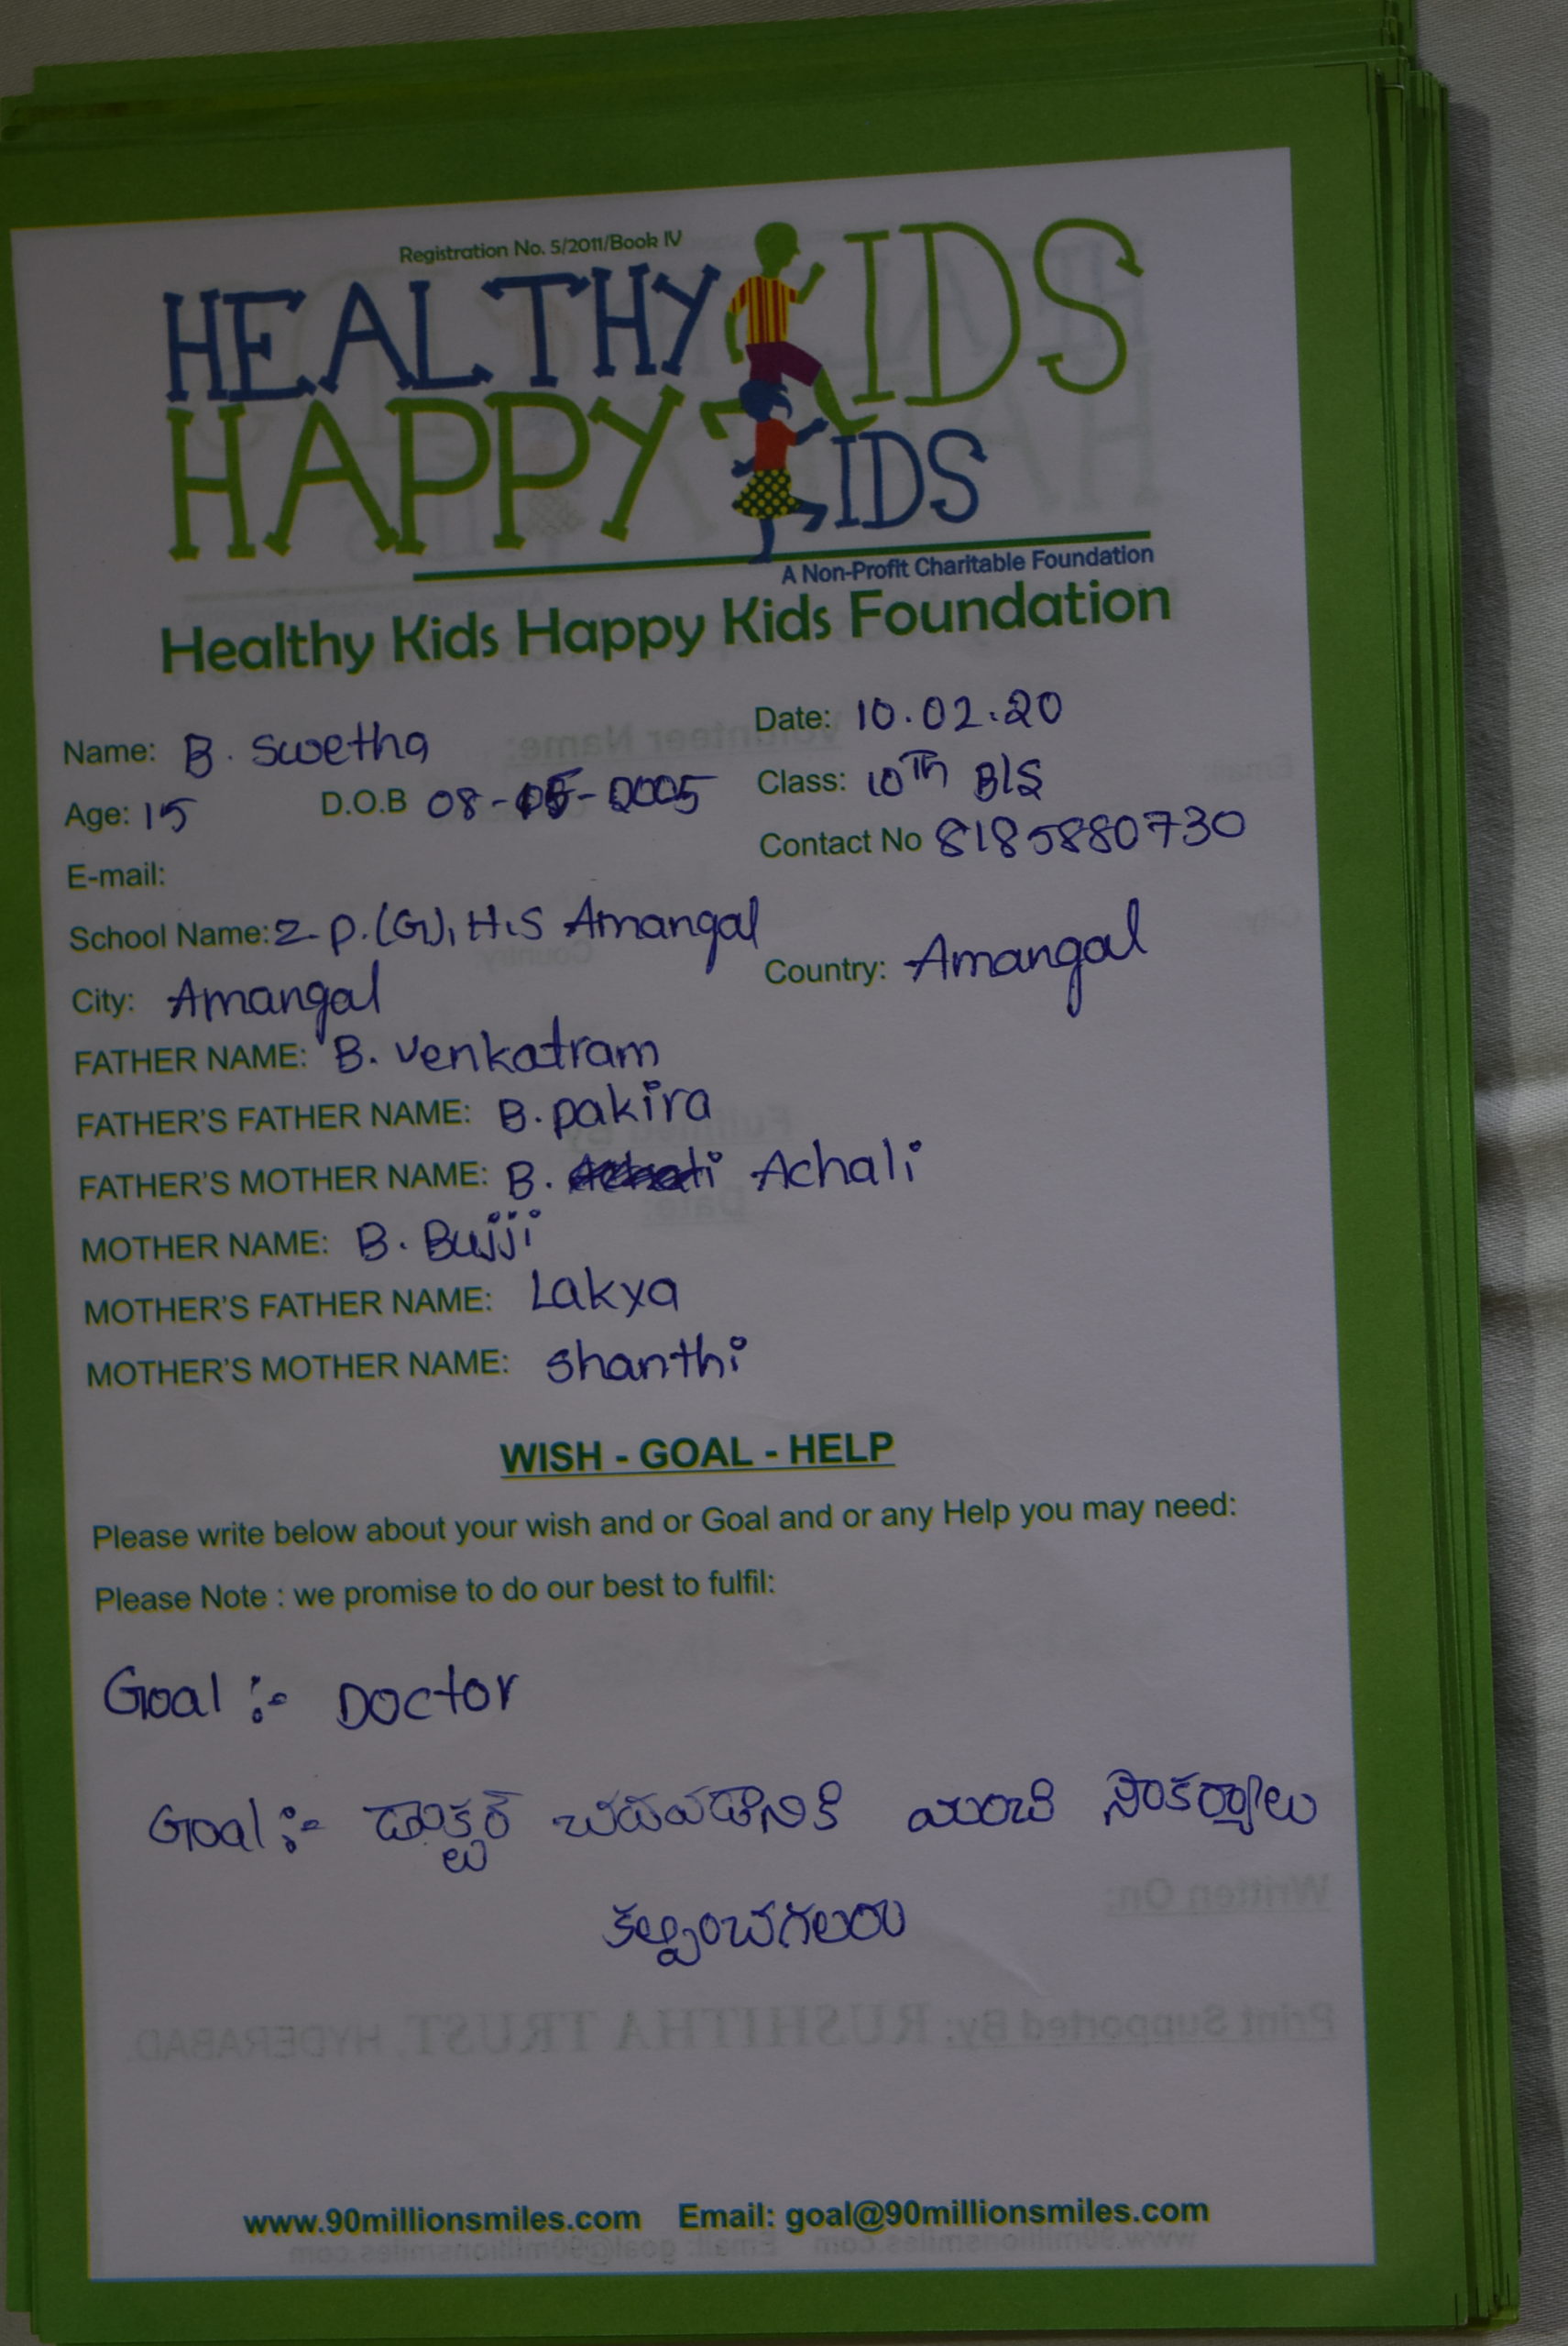 Registration No. 5/2011/Book IV
HEALTHY KIDS
HAPPY KIDS
A Non-Profit Charitable Foundation
Healthy Kids Happy Kids Foundation
Name: B. Swetha Date: 10.02.20
Age: 15 D.O.B 08-05-2005 Class: 10Th B/S
E-mail: Contact No 8185880730
School Name: Z.P.(G), H.S Amangal
City: Amangal Country: Amangal
FATHER NAME: B. Venkatram
FATHER'S FATHER NAME: B. pakira
FATHER'S MOTHER NAME: B. Achali
MOTHER NAME: B. Bujji
MOTHER'S FATHER NAME: Lakya
MOTHER'S MOTHER NAME: Shanthi
WISH - GOAL - HELP
Please write below about your wish and or Goal and or any Help you may need:
Please Note : we promise to do our best to fulfil:
Goal :- Doctor
Goal :- డాక్టర్ చదువడానికి మంచి సౌకర్యాలు
కల్పించగలరు
Written On:
Print Supported By: RUSHITHA TRUST, HYDERABAD.
www.90millionsmiles.com Email: goal@90millionsmiles.com